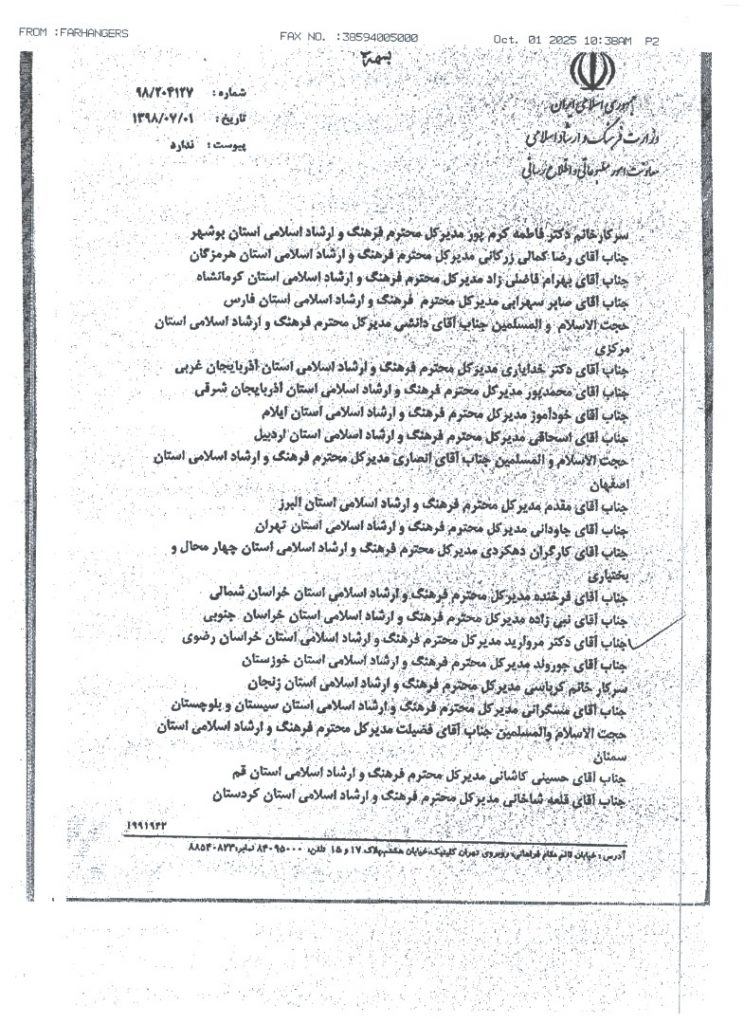 FROM :FARHANGERS FAX NO. :38594005000 Oct. 01 2025 10:38AM P2
جمهوری اسلامی ایران
وزارت فرهنگ و ارشاد اسلامی
معاونت امور مطبوعاتی و اطلاع رسانی
شماره : ۹۸/۲۰۴۱۲۷
تاریخ : ۱۳۹۸/۰۷/۰۱
پیوست : ندارد
سرکارخانم دکتر فاطمه کرم پور مدیرکل محترم فرهنگ و ارشاد اسلامی استان بوشهر
جناب آقای رضا کمالی زرکانی مدیرکل محترم فرهنگ و ارشاد اسلامی استان هرمزگان
جناب آقای بهرام فاضلی زاد مدیرکل محترم فرهنگ و ارشاد اسلامی استان کرمانشاه
جناب آقای صابر سهرابی مدیرکل محترم فرهنگ و ارشاد اسلامی استان فارس
حجت الاسلام و المسلمین جناب آقای دانشی مدیرکل محترم فرهنگ و ارشاد اسلامی استان
مرکزی
جناب آقای دکتر خدایاری مدیرکل محترم فرهنگ و ارشاد اسلامی استان آذربایجان غربی
جناب آقای محمدپور مدیرکل محترم فرهنگ و ارشاد اسلامی استان آذربایجان شرقی
جناب آقای خودآموز مدیرکل محترم فرهنگ و ارشاد اسلامی استان ایلام
جناب آقای اسحاقی مدیرکل محترم فرهنگ و ارشاد اسلامی استان اردبیل
حجت الاسلام و المسلمین جناب آقای انصاری مدیرکل محترم فرهنگ و ارشاد اسلامی استان
اصفهان
جناب آقای مقدم مدیرکل محترم فرهنگ و ارشاد اسلامی استان البرز
جناب آقای جاودانی مدیرکل محترم فرهنگ و ارشاد اسلامی استان تهران
جناب آقای کارگران دهکردی مدیرکل محترم فرهنگ و ارشاد اسلامی استان چهار محال و
بختیاری
جناب آقای فرخنده مدیرکل محترم فرهنگ و ارشاد اسلامی استان خراسان شمالی
جناب آقای نبی زاده مدیرکل محترم فرهنگ و ارشاد اسلامی استان خراسان جنوبی
جناب آقای دکتر مروارید مدیرکل محترم فرهنگ و ارشاد اسلامی استان خراسان رضوی
جناب آقای جوروند مدیرکل محترم فرهنگ و ارشاد اسلامی استان خوزستان
سرکار خانم کرباسی مدیرکل محترم فرهنگ و ارشاد اسلامی استان زنجان
جناب آقای مسگرانی مدیرکل محترم فرهنگ و ارشاد اسلامی استان سیستان و بلوچستان
حجت الاسلام والمسلمین جناب آقای فضیلت مدیرکل محترم فرهنگ و ارشاد اسلامی استان
سمنان
جناب آقای حسینی کاشانی مدیرکل محترم فرهنگ و ارشاد اسلامی استان قم
جناب آقای قلعه شاخانی مدیرکل محترم فرهنگ و ارشاد اسلامی استان کردستان
۱۹۹۱۹۴۲
آدرس : خیابان قائم مقام فراهانی، روبروی تهران کلینیک، خیابان هشتم، پلاک ۱۷ و ۱۵ تلفن: ۸۴۰۹۵۰۰۰ نمابر: ۸۸۵۴۰۸۲۳